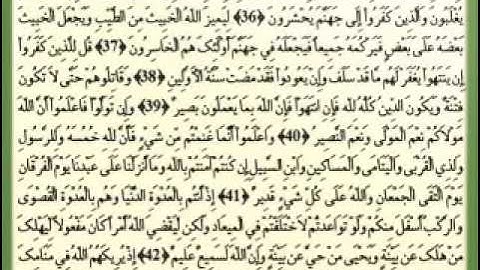 يُغْلَبُونَ وَالَّذِينَ كَفَرُوا إِلَى جَهَنَّمَ يُحْشَرُونَ ﴿36﴾ لِيَمِيزَ اللَّهُ الْخَبِيثَ مِنَ الطَّيِّبِ وَيَجْعَلَ الْخَبِيثَ
بَعْضَهُ عَلَى بَعْضٍ فَيَرْكُمَهُ جَمِيعاً فَيَجْعَلَهُ فِي جَهَنَّمَ أُوْلَئِكَ هُمُ الْخَاسِرُونَ ﴿37﴾ قُل لِلَّذِينَ كَفَرُوا
إِن يَنتَهُوا يُغْفَرْ لَهُم مَّا قَدْ سَلَفَ وَإِن يَعُودُوا فَقَدْ مَضَتْ سُنَّةُ الأَوَّلِينَ ﴿38﴾ وَقَاتِلُوهُمْ حَتَّى لاَ تَكُونَ
فِتْنَةٌ وَيَكُونَ الدِّينُ كُلُّهُ لِلَّهِ فَإِنِ انتَهَوْا فَإِنَّ اللَّهَ بِمَا يَعْمَلُونَ بَصِيرٌ ﴿39﴾ وَإِن تَوَلَّوْا فَاعْلَمُوا أَنَّ اللَّهَ
مَوْلاَكُمْ نِعْمَ الْمَوْلَى وَنِعْمَ النَّصِيرُ ﴿40﴾ وَاعْلَمُوا أَنَّمَا غَنِمْتُم مِّن شَيْءٍ فَأَنَّ لِلَّهِ خُمُسَهُ وَلِلرَّسُولِ
وَلِذِي الْقُرْبَى وَالْيَتَامَى وَالْمَسَاكِينِ وَابْنِ السَّبِيلِ إِن كُنتُمْ آمَنتُم بِاللَّهِ وَمَا أَنزَلْنَا عَلَى عَبْدِنَا يَوْمَ الْفُرْقَانِ
يَوْمَ الْتَقَى الْجَمْعَانِ وَاللَّهُ عَلَى كُلِّ شَيْءٍ قَدِيرٌ ﴿41﴾ إِذْ أَنتُم بِالْعُدْوَةِ الدُّنْيَا وَهُم بِالْعُدْوَةِ الْقُصْوَى
وَالرَّكْبُ أَسْفَلَ مِنكُمْ وَلَوْ تَوَاعَدتُّمْ لاَخْتَلَفْتُمْ فِي الْمِيعَادِ وَلَكِن لِّيَقْضِيَ اللَّهُ أَمْراً كَانَ مَفْعُولاً لِيَهْلِكَ
مَنْ هَلَكَ عَن بَيِّنَةٍ وَيَحْيَى مَنْ حَيَّ عَن بَيِّنَةٍ وَإِنَّ اللَّهَ لَسَمِيعٌ عَلِيمٌ ﴿42﴾ إِذْ يُرِيكَهُمُ اللَّهُ فِي مَنَامِكَ